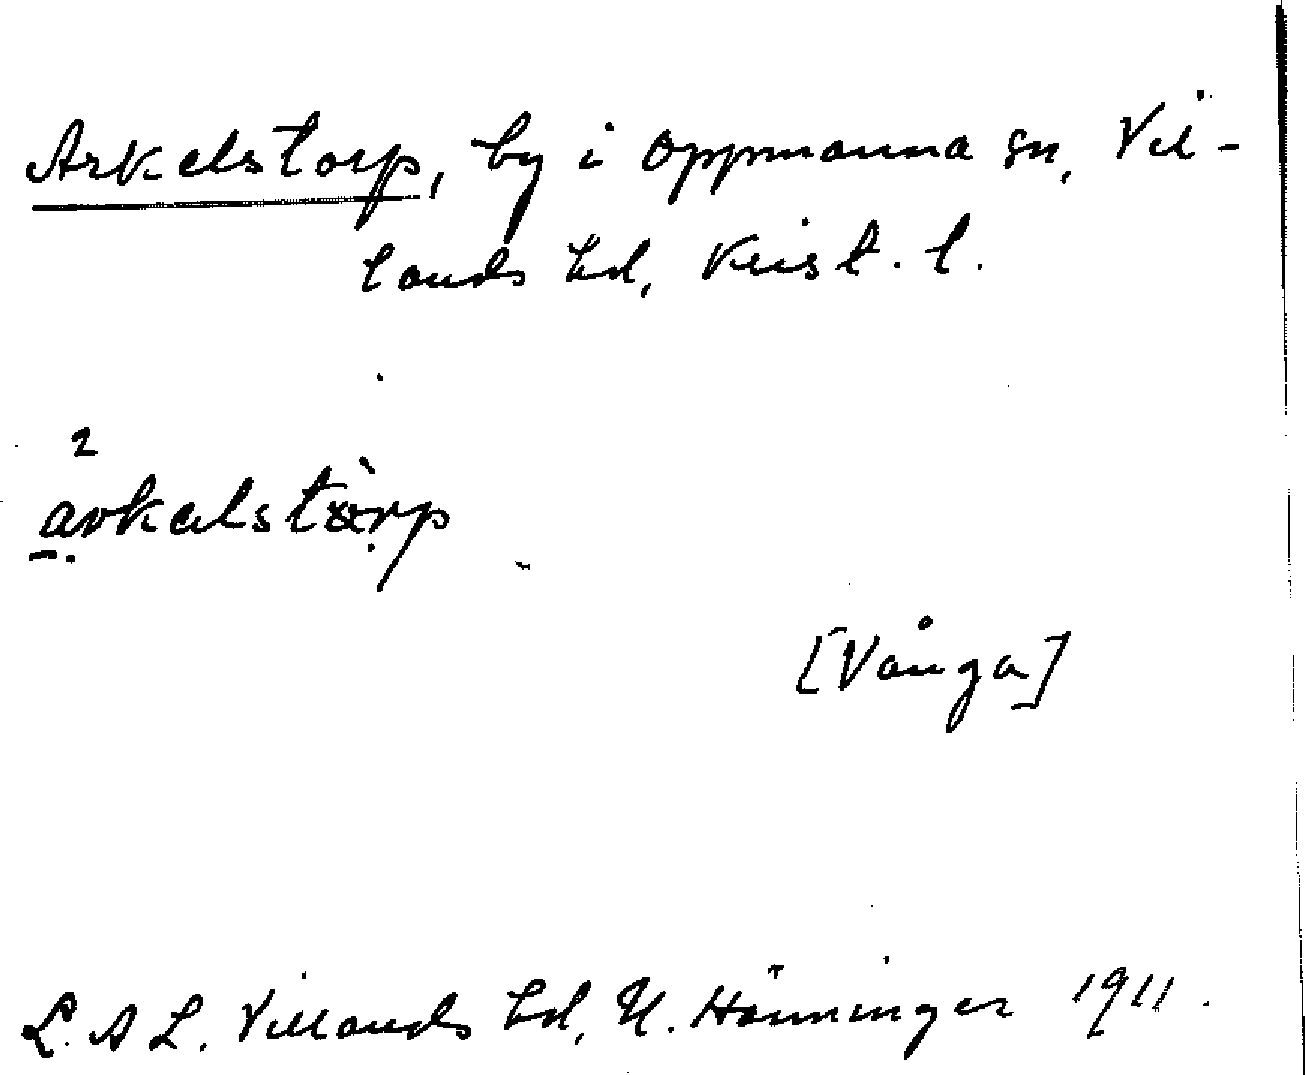 Arkelstorp, by i Oppmanna sn, Vil-
lands hd, Krist. l.
2
arkelstòrp
[Vånga]
L. A L. Villands hd, N. Hänninger 1911.